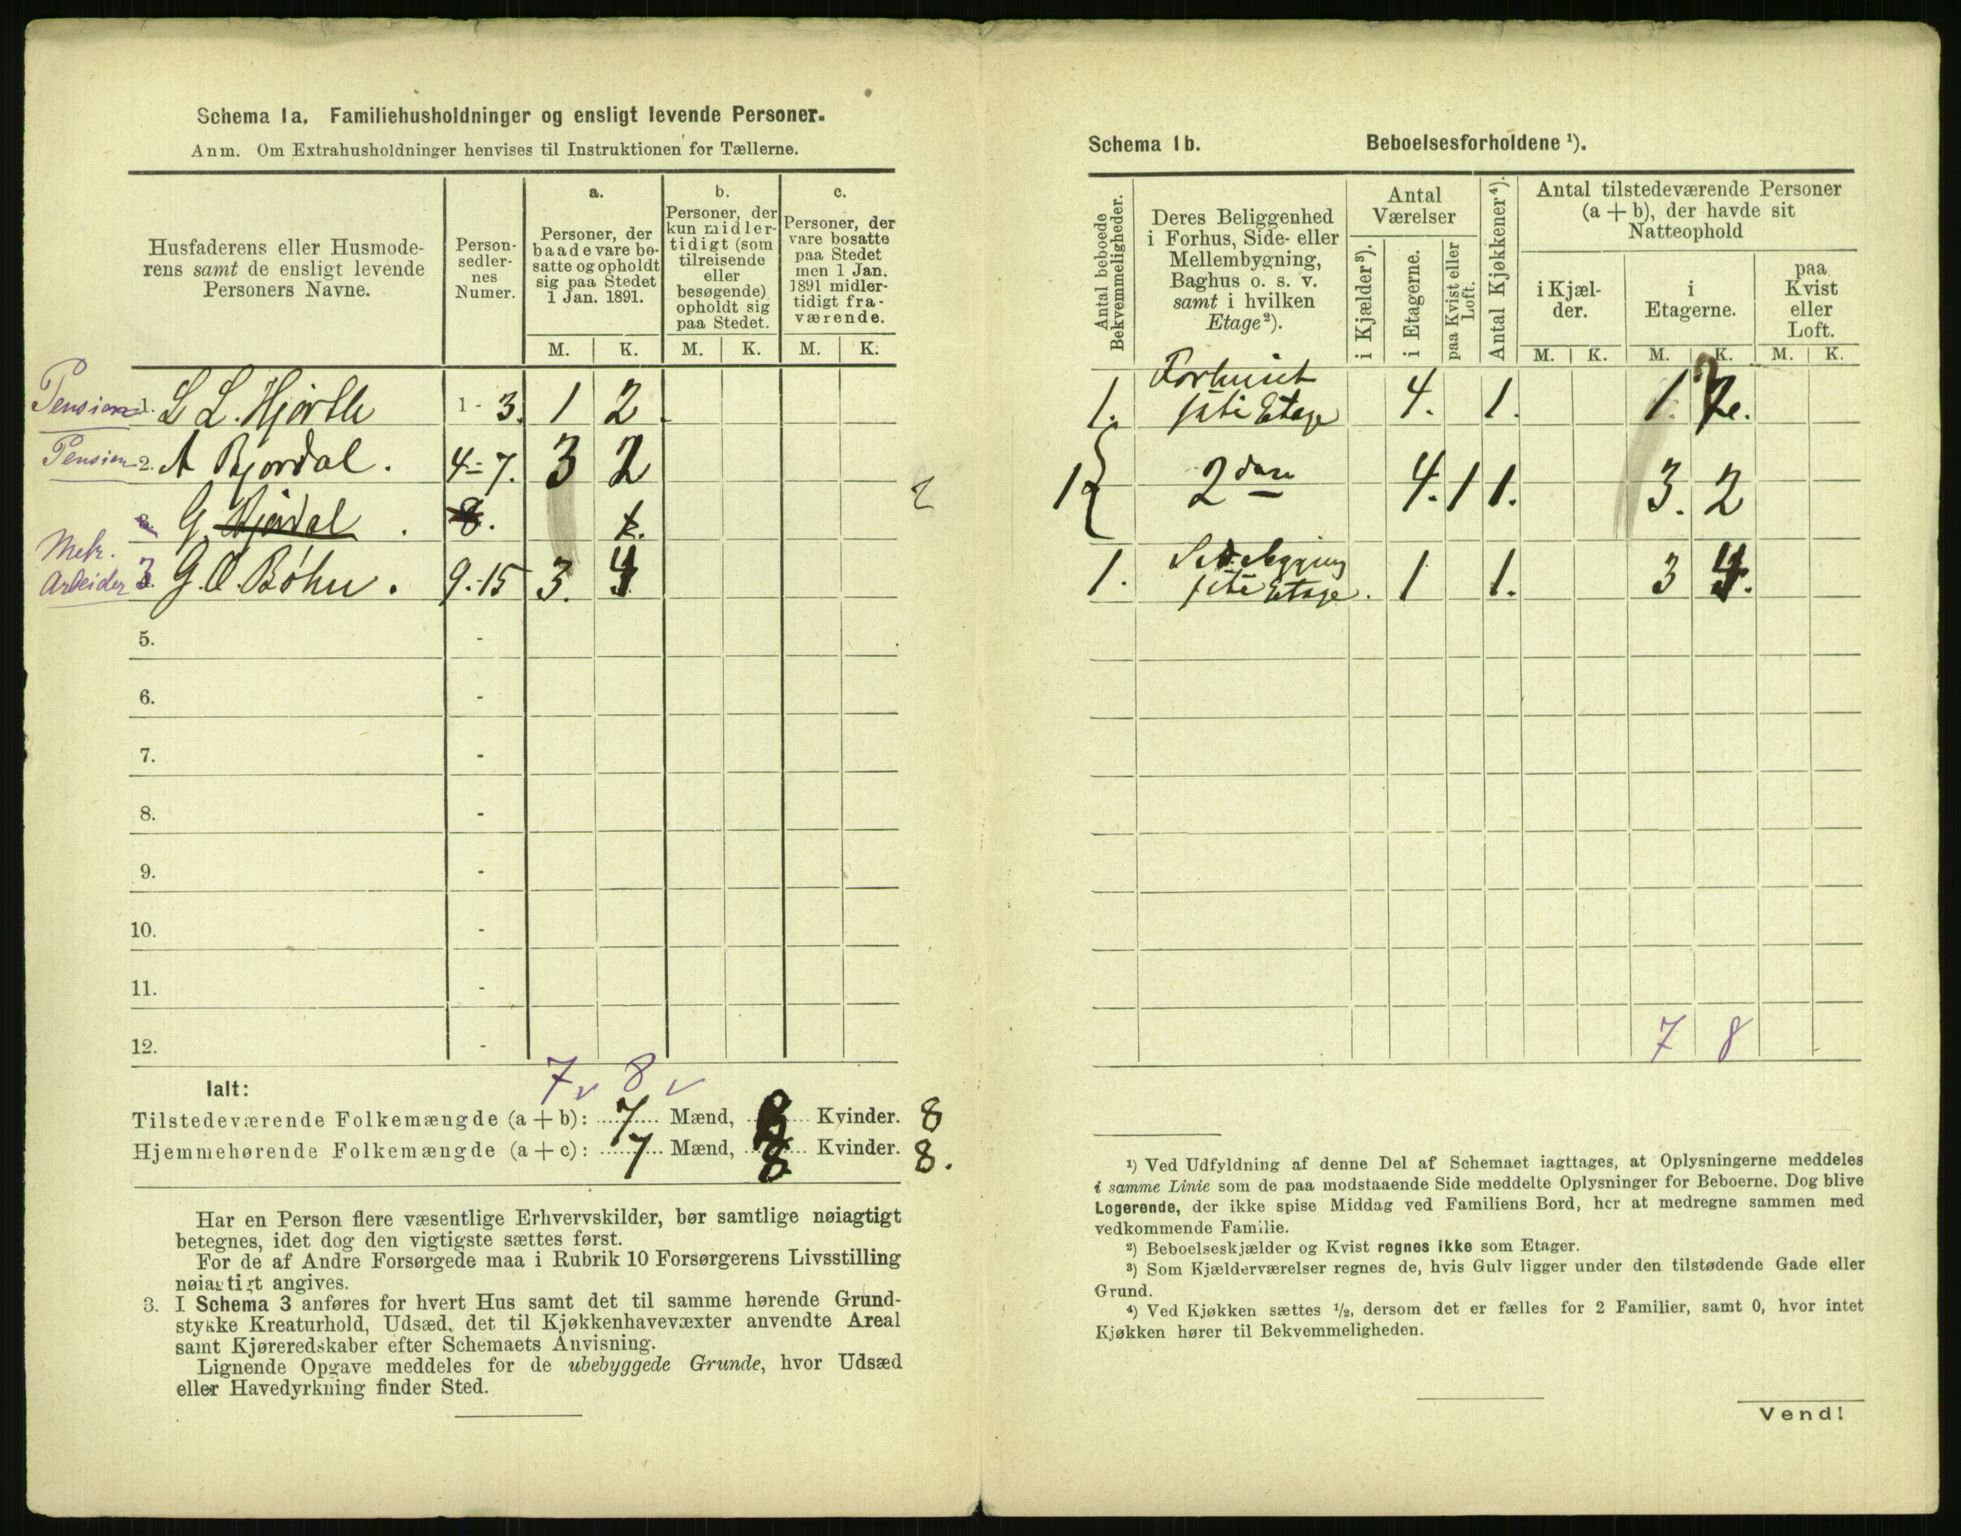 Schema 1a. Familiehusholdninger og ensligt levende Personer.
Anm. Om Extrahusholdninger henvises til Instruktionen for Tællerne.
Husfaderens eller Husmoderens samt de ensligt levende Personers Navne.
Personsedlernes Numer.
a.
Personer, der baade vare bosatte og opholdt sig paa Stedet 1 Jan. 1891.
b.
Personer, der kun midlertidigt (som tilreisende eller besøgende) opholdt sig paa Stedet.
c.
Personer, der vare bosatte paa Stedet men 1 Jan. 1891 midlertidigt fraværende.
M. K. M. K. M. K.
Pension 1. L L. Hjorth 1 - 3. 1 2
Pension 2. A Bjordal. 4 - 7. 3 2
3. G. Björdal. 8. 1.
Mek. Arbeider 3. G. O. Bøhn. 9.-15 3. 4
2
5. -
6. -
7. -
8. -
9. -
10. -
11. -
12. -
7 v 8 v
Ialt:
Tilstedeværende Folkemængde (a + b): 7 Mænd, 8 Kvinder. 8
Hjemmehørende Folkemængde (a + c): 7 Mænd, 8 Kvinder. 8.
Har en Person flere væsentlige Erhvervskilder, bør samtlige nøiagtigt
betegnes, idet dog den vigtigste sættes først.
For de af Andre Forsørgede maa i Rubrik 10 Forsørgerens Livsstilling
nøiagtigt angives.
3. I Schema 3 anføres for hvert Hus samt det til samme hørende Grund-
stykke Kreaturhold, Udsæd, det til Kjøkkenhavevæxter anvendte Areal
samt Kjøreredskaber efter Schemaets Anvisning.
Lignende Opgave meddeles for de ubebyggede Grunde, hvor Udsæd
eller Havedyrkning finder Sted.
Schema 1b. Beboelsesforholdene ¹).
Antal beboede Bekvemmeligheder.
Deres Beliggenhed i Forhus, Side- eller Mellembygning, Baghus o. s. v. samt i hvilken Etage²).
Antal Værelser
i Kjælder³).
i Etagerne.
paa Kvist eller Loft.
Antal Kjøkkener⁴).
Antal tilstedeværende Personer (a + b), der havde sit Natteophold
i Kjælder.
i Etagerne.
paa Kvist eller Loft.
M. K. M. K. M. K.
1. Forhuset 1ste Etage 4. 1. 1. 2.
1 2 den 4. 1 1. 3. 2
1. Sidebygning 1ste Etage. 1 1. 3 4.
7 8
¹) Ved Udfyldning af denne Del af Schemaet iagttages, at Oplysningerne meddeles
i samme Linie som de paa modstaaende Side meddelte Oplysninger for Beboerne. Dog blive
Logerende, der ikke spise Middag ved Familiens Bord, her at medregne sammen med
vedkommende Familie.
²) Beboelseskjælder og Kvist regnes ikke som Etager.
³) Som Kjælderværelser regnes de, hvis Gulv ligger under den tilstødende Gade eller
Grund.
⁴) Ved Kjøkken sættes ½, dersom det er fælles for 2 Familier, samt 0, hvor intet
Kjøkken hører til Bekvemmeligheden.
Vend!